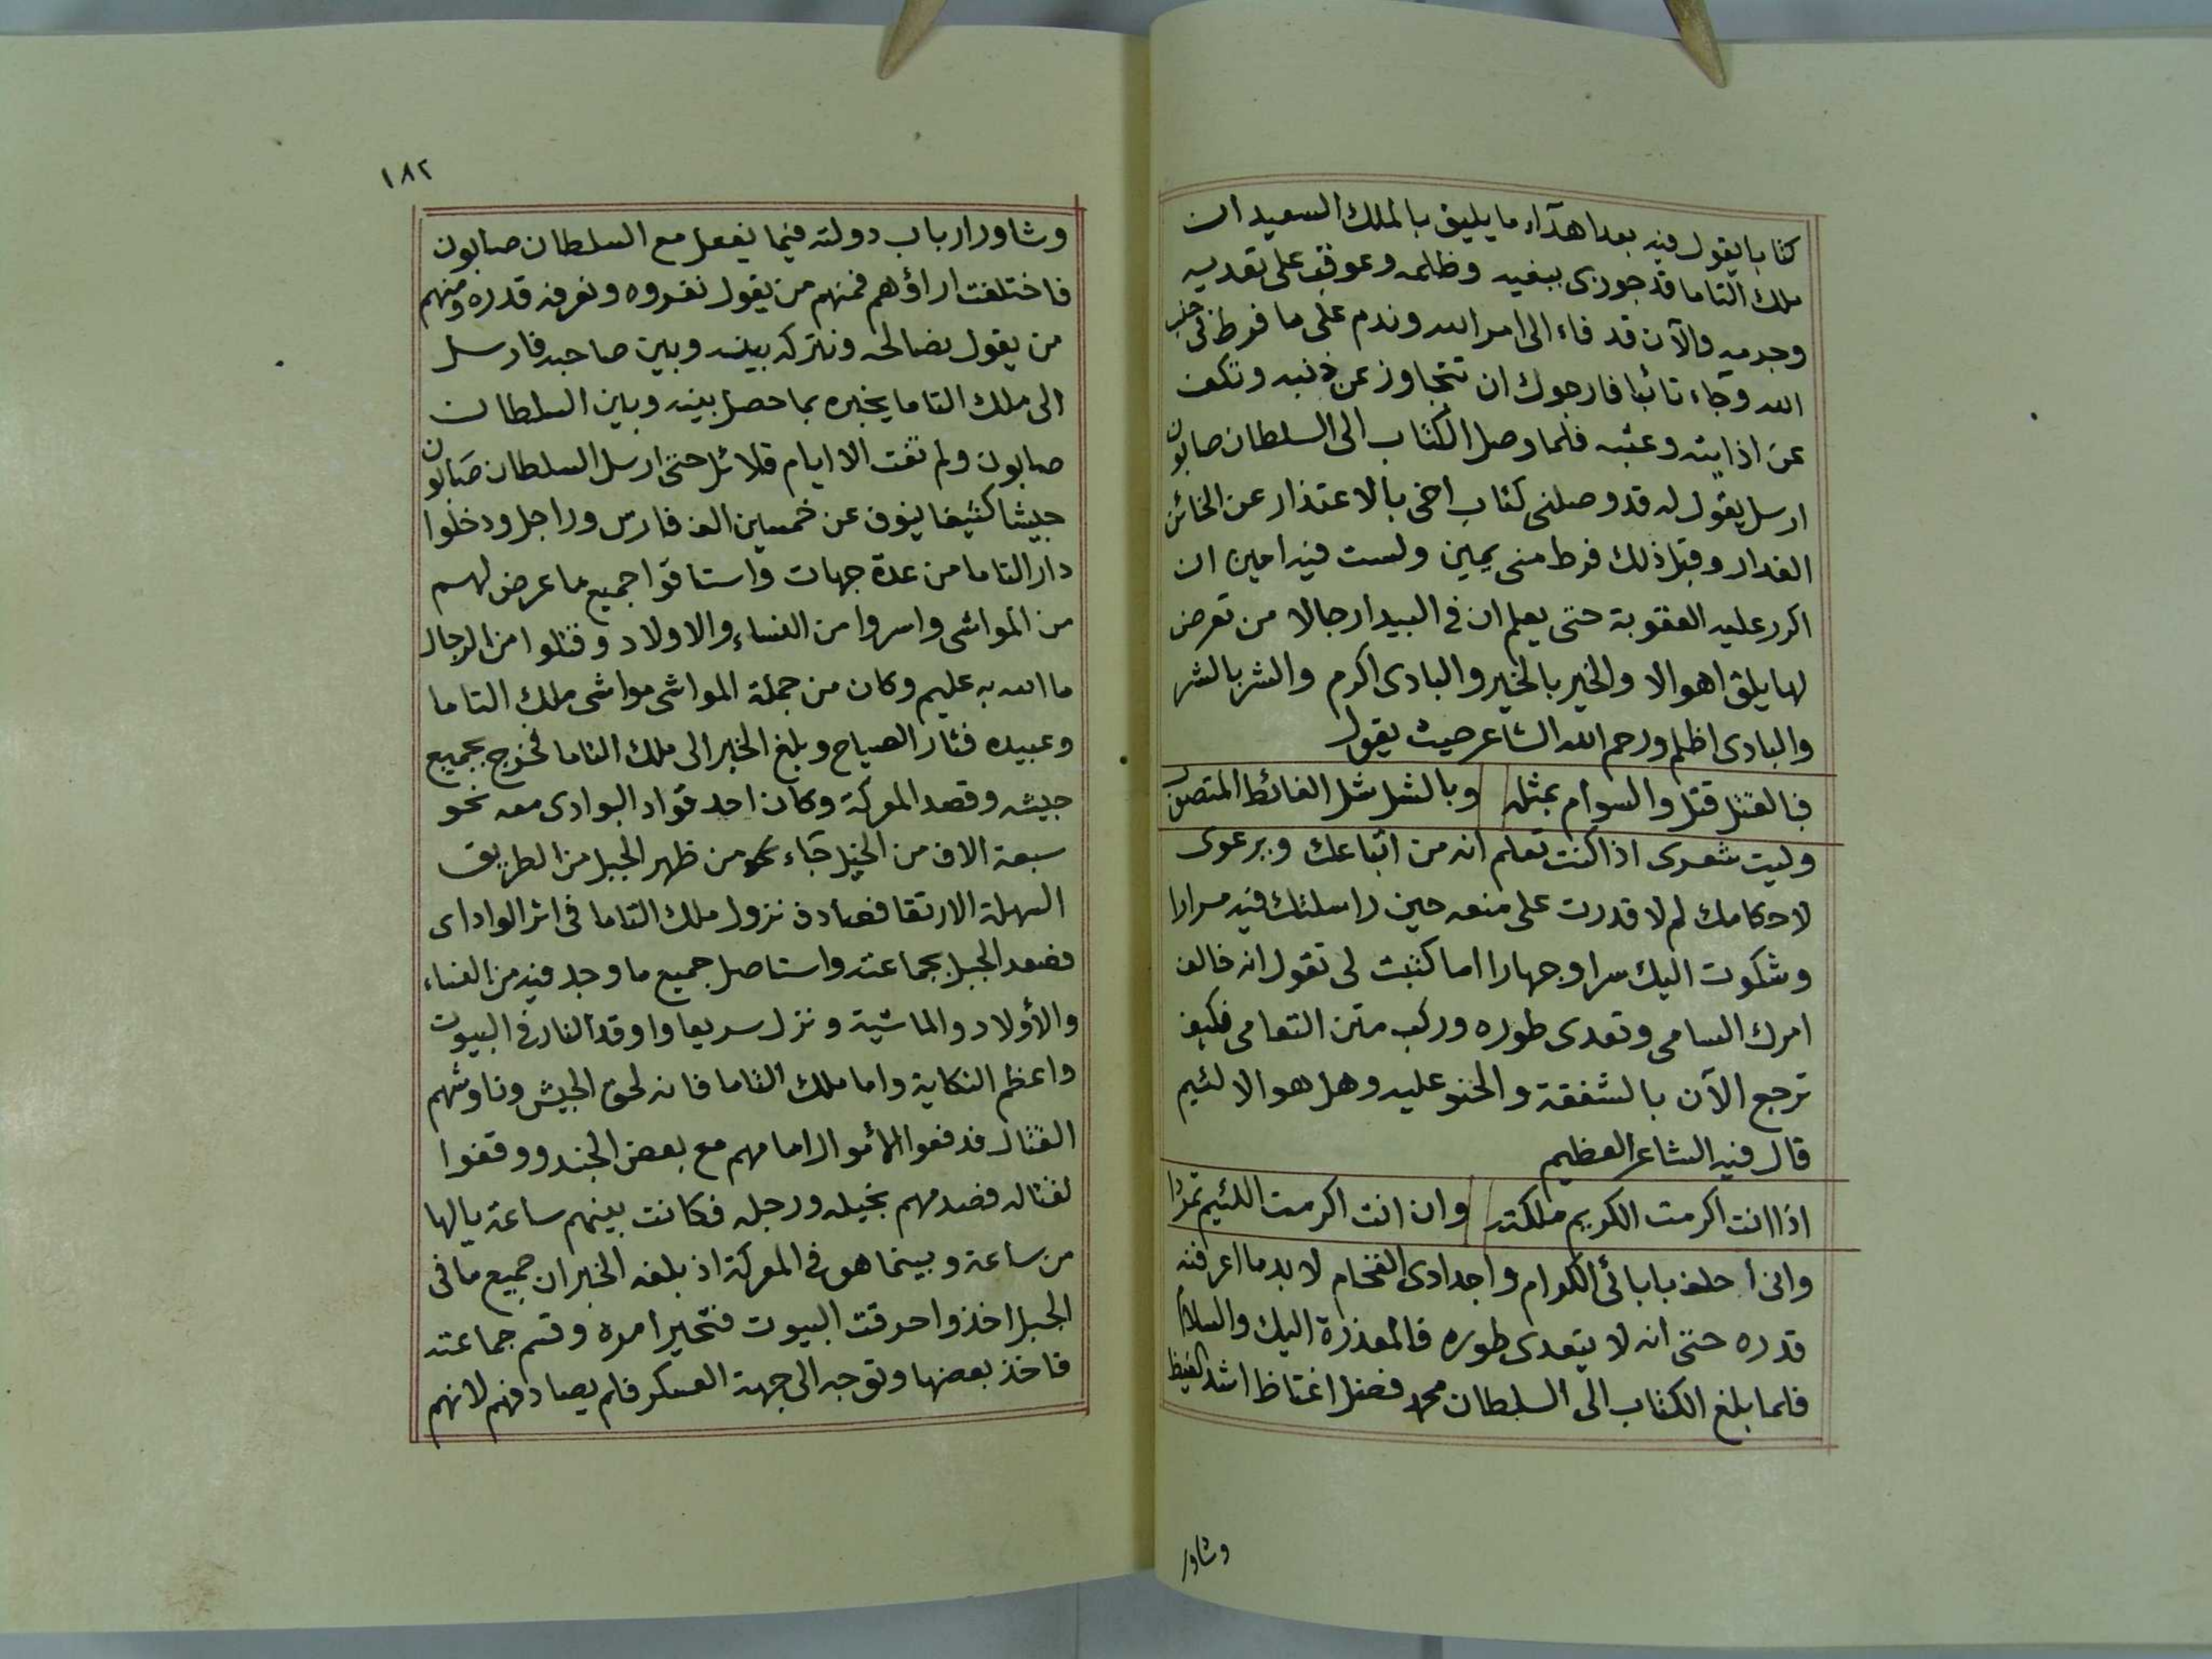 كتابا يقول فيه بعد اهدآء ما يليق بالملك السعيد ان
ملك التاما قد جوزى ببغيه وظلمه وعوقب على تعديه
وجرمه والآن قد فاء الى امر الله وندم على ما فرط فى جنب
الله وجاء تائبا فارجوك ان تتجاوز عن ذنبه وتكف
عن اذايته وعتبه فلما وصل الكتاب الى السلطان صابون
ارسل يقول له قد وصلنى كتاب اخى بالاعتذار عن الخائن
الغدار وقبل ذلك فرط منى يمين ولست فيه امين ان
اكرر عليه العقوبة حتى يعلم ان فى البيدا رجالا من تعرض
لها يلق اهوالا والخير بالخير والبادى اكرم والشر بالشر
والبادى اظلم ورحم الله الشاعر حيث يقول
فبالقتل قتل والسوام بمثله وبالشل شل الغائط المتصوب
وليت شعرى اذا كنت تعلم انه من اتباعك ويرعوى
لاحكامك لم لا قدرت على منعه حين راسلتك فيه مرارا
وشكوت اليك سرا وجهارا اما كتبت لى تقول انه خالف
امرك السامى وتعدى طوره وركب متن التعامى فكيف
ترجع الآن بالشفقة والحنو عليه وهل هو الا لئيم
قال فيه الشاعر العظيم
اذا انت اكرمت الكريم ملكته وان انت اكرمت اللئيم تمردا
وانى احلف بابائى الكرام واجدادى الفخام لا بد ما اعرفنه
قدره حتى انه لا يتعدى طوره فالمعذرة اليك والسلام
فلما بلغ الكتاب الى السلطان محمد فضل اغتاظ اشد الغيظ
وشاور
١٨٢
وشاور ارباب دولته فيما يفعل مع السلطان صابون
فاختلفت اراؤهم فمنهم من يقول نغزوه ونعرفه قدره ومنهم
من يقول نصالحه ونتركه بينه وبين صاحبه فارسل
الى ملك التاما يخبره بما حصل بينه وبين السلطان
صابون ولم تفت الا ايام قلائل حتى ارسل السلطان صابون
جيشا كثيفا ينوف عن خمسين الف فارس وراجل ودخلوا
دار التاما من عدة جهات واستاقوا جميع ما عرض لهم
من المواشى واسروا من النساء والاولاد وقتلوا من الرجال
ما الله به عليم وكان من جملة المواشى مواشى ملك التاما
وعبيده فثار الصياح وبلغ الخبر الى ملك التاما فخرج بجميع
جيشه وقصد المعركة وكان احد قواد البوادى معه نحو
سبعة الاف من الخيل جاء من ظهر الجبل من الطريق
السهلة الارتقا فصادف نزول ملك التاما فى اثر الواداى
فصعد الجبل بجماعته واستاصل جميع ما وجد فيه من النساء
والأولاد والماشية ونزل سريعا واوقد النار فى البيوت
واعظم النكاية واما ملك التاما فانه لحق الجيش وناوشهم
القتال فدفعوا الأموال امامهم مع بعض الجند ووقفوا
لقتاله فصدمهم بخيله ورجله فكانت بينهم ساعة يالها
من ساعة وبينما هو فى المعركة اذ بلغه الخبر ان جميع ما فى
الجبل اخذ واحرقت البيوت فتحير امره وقسم جماعته
فاخذ بعضها وتوجه الى جهة العسكر فلم يصادفهم لانهم